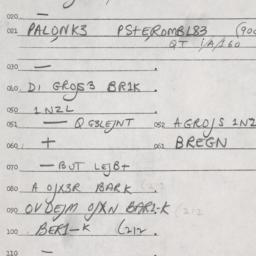 020. —
021 PALONK3 PSTEROMBL83 (900
QT 1/A/160
030 — .
040 DI GROJS3 BR1K .
050 1NZL .
051 — Q G3LEJNT 052 AGROJS 1NZ
060 + . 061 BREGN
070 — BUT LEJB+ .
080 A OJX3R BARK (212
090 OVDEJM OJXN BAR1-K (212
100 BER1—K (212 .
110 —